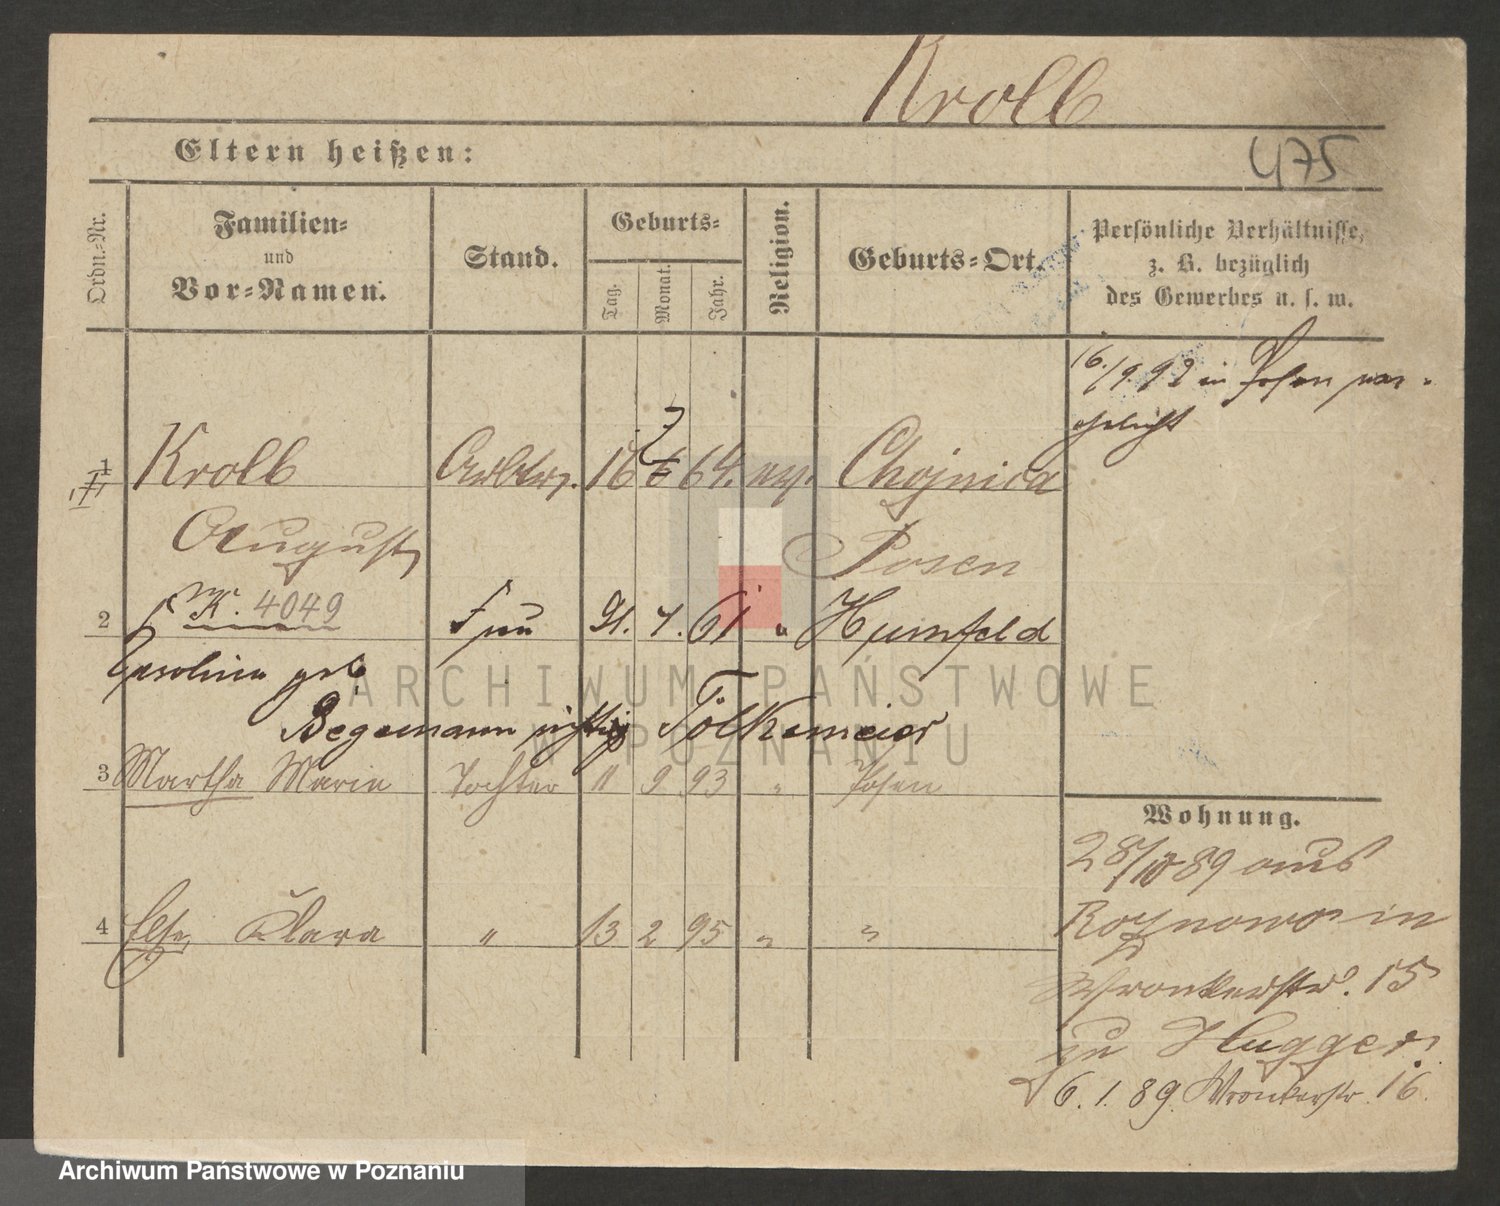 Kroll
Eltern heißen:
475
Ordn.-Nr.
Familien-
und
Vor-Namen.
Stand.
Geburts-
Tag.
Monat.
Jahr.
Religion.
Geburts-Ort.
Persönliche Verhältnisse,
z. B. bezüglich
des Gewerbes u. s. w.
16./9. 92 in Posen ver-
ehelicht
1 Kroll 16 7 64. ev. Chojnica
August Posen
K. 4049
2 Frau 21. 7. 61 " Humfeld
Caroline geb.
Begemann richtig Tölkemeier
3 Martha Marie Tochter 11 9 93 " Posen
4 Else Klara " 13 2 95 " "
Wohnung.
28/10 89 aus
Roznowo in
Wronkerstr. 15
zu Hugger
6. 1. 89. Wronkerstr. 16.
ARCHIWUM PAŃSTWOWE
W POZNANIU
Archiwum Państwowe w Poznaniu